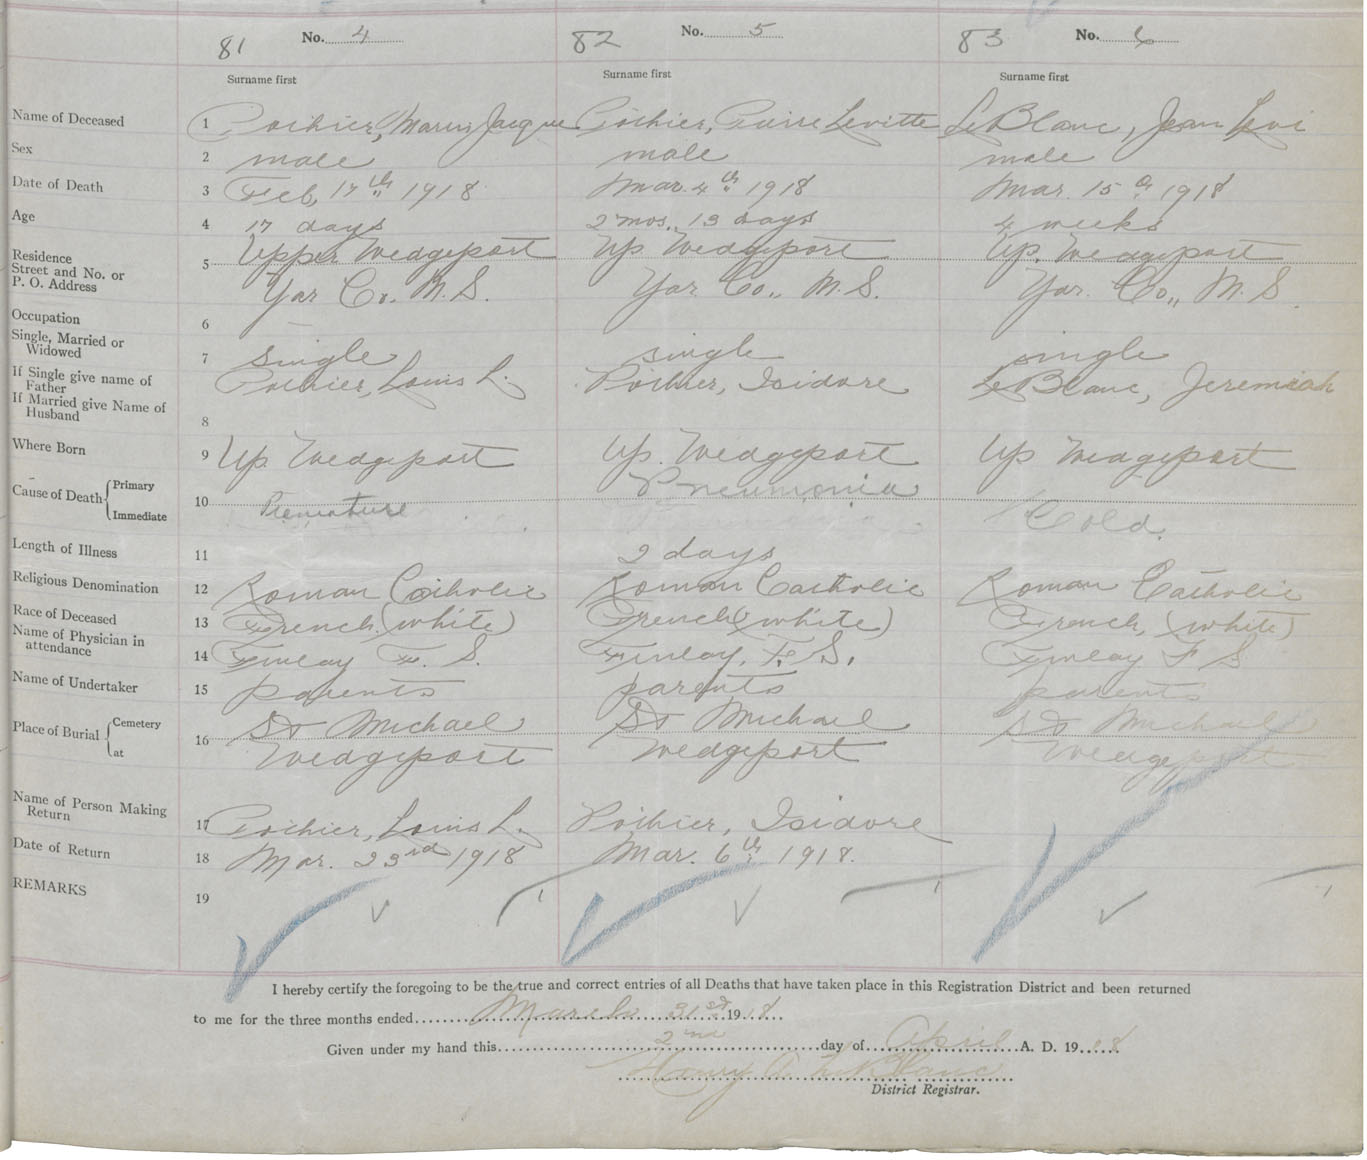 81 No. 4 82 No. 5 83 No. 6
Surname first Surname first Surname first
Name of Deceased 1 Pothier, Marius Jacque Pothier, Pierre Levitte LeBlanc, Jean Levi
Sex 2 male male male
Date of Death 3 Feb, 17th 1918 Mar. 4th 1918 Mar. 15th 1918
Age 4 17 days 2 mos. 13 days 4 weeks
Residence Street and No. or P. O. Address 5 Upper Wedgeport Up Wedgeport Up. Wedgeport
Yar Co. N.S. Yar Co., N.S. Yar. Co., N.S.
Occupation 6
Single, Married or Widowed 7 single single single
If Single give name of Father Pothier, Louis L. Pothier, Isidore LeBlanc, Jeremiah
If Married give Name of Husband 8
Where Born 9 Up. Wedgeport Up. Wedgeport Up Wedgeport
Cause of Death Primary Pneumonia
Immediate 10 Premature Cold.
Length of Illness 11 2 days
Religious Denomination 12 Roman Catholic Roman Catholic Roman Catholic
Race of Deceased 13 French (white) French (white) French, (white)
Name of Physician in attendance 14 Finlay F. S. Finlay, F. S. Finlay F S
Name of Undertaker 15 parents parents parents
Place of Burial Cemetery 16 St Michael St Michael St Michael
at Wedgeport Wedgeport Wedgeport
Name of Person Making Return 17 Pothier, Louis L. Pothier, Isidore
Date of Return 18 Mar. 23rd 1918 Mar. 6th 1918.
REMARKS 19
I hereby certify the foregoing to be the true and correct entries of all Deaths that have taken place in this Registration District and been returned
to me for the three months ended March 31st 1918
Given under my hand this 2nd day of April A. D. 1918
Henry A. LeBlanc
District Registrar.